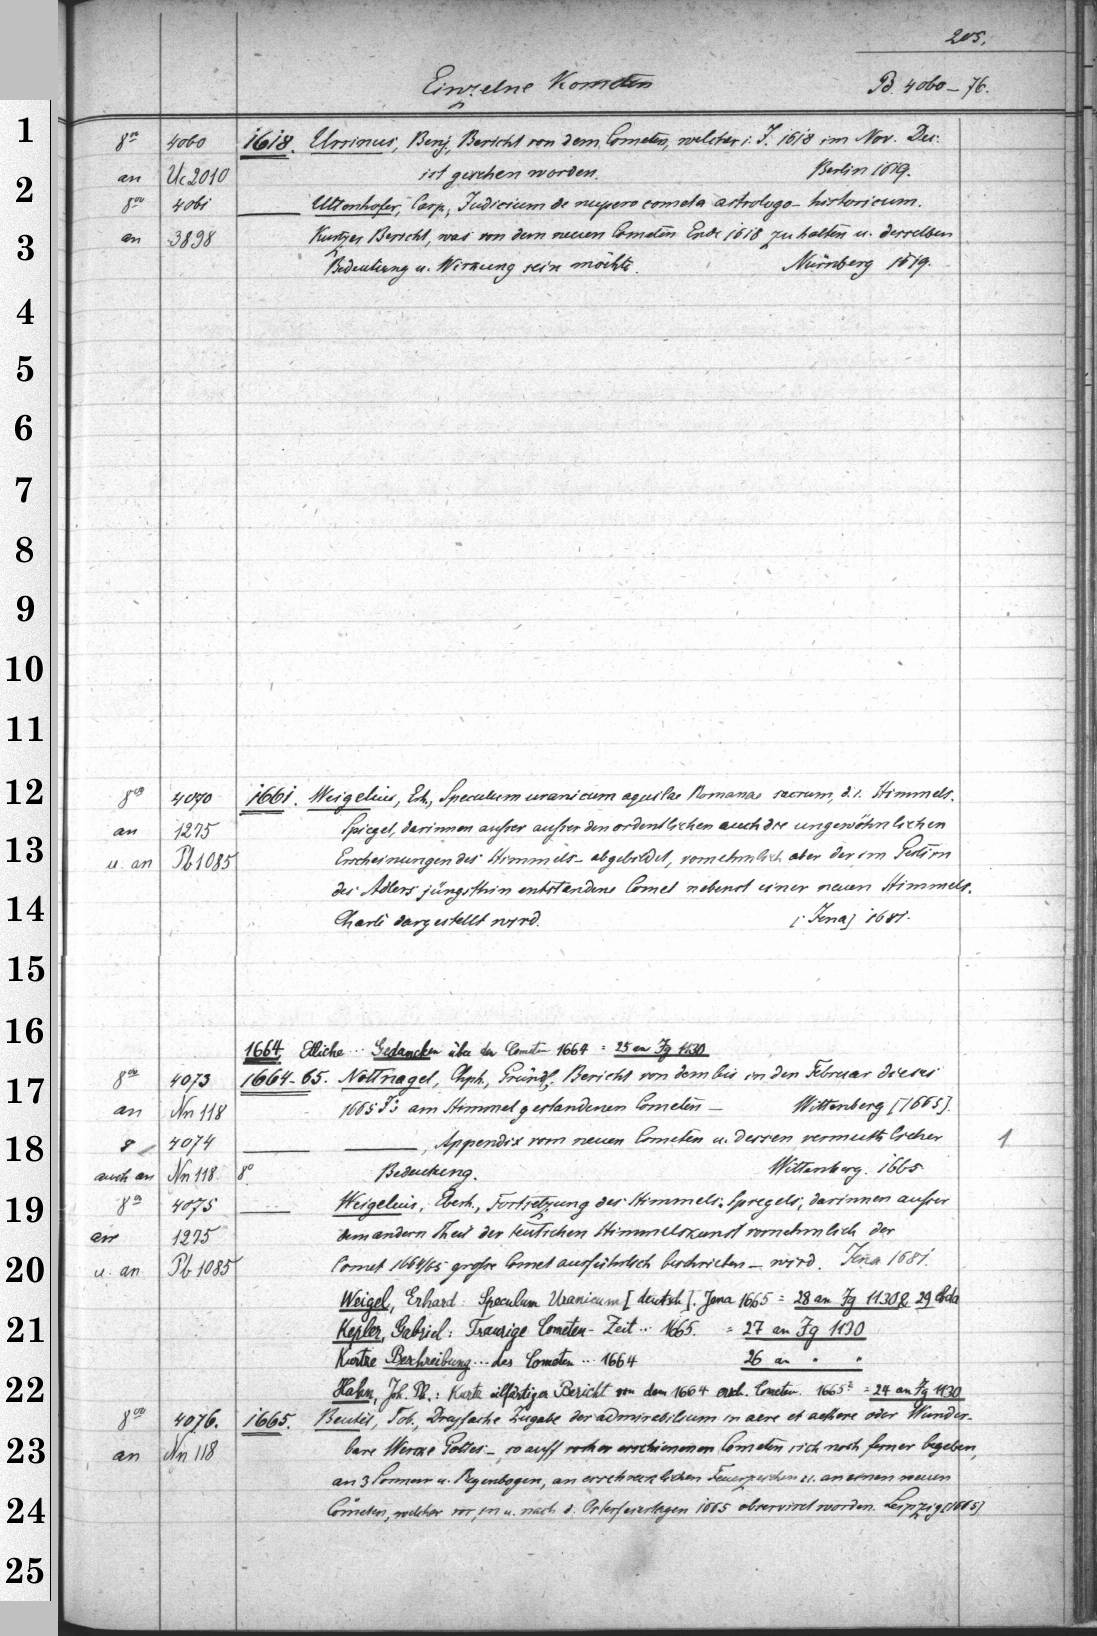 205.
Einzelne Kometen B. 4060-76.
1
8vo 4060 1618. Ursinus, Benj. Bericht von dem Cometen, welcher i. J. 1618 im Nov. Dec.
an Uc 2010 ist gesehen worden. Berlin 1619.
2
8vo 4061 Uttenhofer, Casp., Judicium de nupero cometa astrologo-historicum.
an 3898 Kurtzer Bericht, was von dem neuen Cometen Ende 1618 zu halten u. derselben
3
Bedeutung u. Wirkung sein möchte. Nürnberg 1619.
4
5
6
7
8
9
10
11
12
8vo 4070 1661. Weigelius, Erh., Speculum uranicum aquilae Romanae sacrum, d. i. Himmels-
an 1275 Spiegel, darinnen ausser ausser den ordentlichen auch die ungewöhnlichen
13
u. an Pb 1085 Erscheinungen des Himmels - abgebildet, vornehmlich aber der im Gestirn
des Adlers jüngsthin entstandene Comet nebenst einer neuen Himmels-
14
Charte dargestellt wird. [Jena] 1681.
15
16
1664 Etliche ... Gedancken über den Cometen 1664 = 25 an Jg 1130
17
8vo 4073 1664-65. Nottnagel, Chph., Gründl. Bericht von dem bis in den Februar dieses
an Nn 118 1665 J's am Himmel gestandenen Cometen - Wittenberg [1665].
18
8 4074 , Appendix vom neuen Cometen u. dessen vermuthlicher 1
auch an Nn 118 8° Bedeutung. Wittenberg. 1665
19
8vo 4075 Weigelius, Erh., Fortsetzung des Himmels-Spiegels, darinnen ausser
an 1275 dem andern Theil der teutschen Himmelskunst vornehmlich der
20
u. an Pb 1085 Comet 1664/65 grosse Comet ausführlich beschrieben - wird. Jena 1681.
Weigel, Erhard: Speculum Uranicum [deutsch]. Jena 1665 = 28 an Jg 1130 & 29 ebda
21
Kepler, Gabriel: Traurige Cometen-Zeit ... 1665. = 27 an Jg 1130
Kurtze Beschreibung ... des Cometen ... 1664 26 an " "
22
Hahn, Joh. Ph.: Kurtz eilfärtiger Bericht von dem 1664 ersch. Cometen. 1665² = 24 an Jg 1130
8vo 4076. 1665. Beutel, Tob., Dreyfache Zugabe der admirabilium in aere et aethere oder Wunder-
23
an Nn 118 bare Wercke Gottes -, so auff vorher erschienenen Cometen sich noch ferner begeben,
an 3 Sonnen u. Regenbogen, an erschrecklichen Feuerzeichen u. an einen neuen
24
Cometen, welcher vor, in u. nach d. Osterfeiertagen 1665 observiret worden. Leipzig [1665]
25